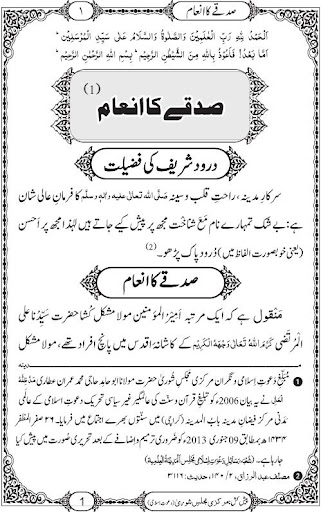 صدقے کا انعام
۱
اَلْحَمْدُ لِلّٰهِ رَبِّ الْعٰلَمِیْنَ وَالصَّلٰوةُ وَالسَّلَامُ عَلٰی سَیِّدِ الْمُرْسَلِیْنَ ؕ
اَمَّا بَعْدُ! فَاَعُوْذُ بِاللهِ مِنَ الشَّیْطٰنِ الرَّجِیْمِ ؕ بِسْمِ اللهِ الرَّحْمٰنِ الرَّحِیْمِ ؕ
صدقے کا انعام (1)
درود شریف کی فضیلت
سرکارِ مدینہ، راحتِ قلب و سینہ صَلَّی اللهُ تَعَالٰی عَلَیْهِ وَاٰلِهٖ وَسَلَّم کا فرمانِ عالی شان
ہے: بے شک تمہارے نام مَعَ شناخت مجھ پر پیش کیے جاتے ہیں لہٰذا مجھ پر اَحْسَن
(یعنی خوبصورت الفاظ میں) دُرودِ پاک پڑھو۔ (2)
صدقے کا انعام
مَنْقول ہے کہ ایک مرتبہ اَمِیْرُ الْمُؤمنین مولا مشکل کُشا حضرت سیِّدُنا علی
الْمُرتَضٰی کَرَّمَ اللهُ تَعَالٰی وَجْهَهُ الْکَرِیْم کے کاشانۂ اقدس میں پانچ افراد تھے، مولا مشکل
1 مُبلّغِ دعوتِ اسلامی و نگرانِ مرکزی مجلسِ شوریٰ حضرت مولانا ابو حامد حاجی محمد عمران عطاری مَدَّظِلُّهُ
الْعَالِی نے یہ بیان 2006ء کو تبلیغِ قرآن و سنت کی عالمگیر غیر سیاسی تحریک دعوتِ اسلامی کے عالمی
مَدَنی مرکز فیضانِ مدینہ باب المدینہ (کراچی) میں سنتوں بھرے اجتماع میں فرمایا۔ ۲۶ صفر المظفر
۱۴۳۴ھ بمطابق 09 جنوری 2013ء کو ضروری ترمیم و اضافے کے بعد تحریری صورت میں پیش کیا
جا رہا ہے۔ (شعبہ رسائلِ دعوتِ اسلامی مجلس اَلْمَدِیْنَةُ الْعِلْمِیَّة)
2 مصنف عبد الرزاق، ۲/۱۴۰، حدیث: ۳۱۱۶
پیش کش: مرکزی مجلسِ شوریٰ (دعوتِ اسلامی)
1